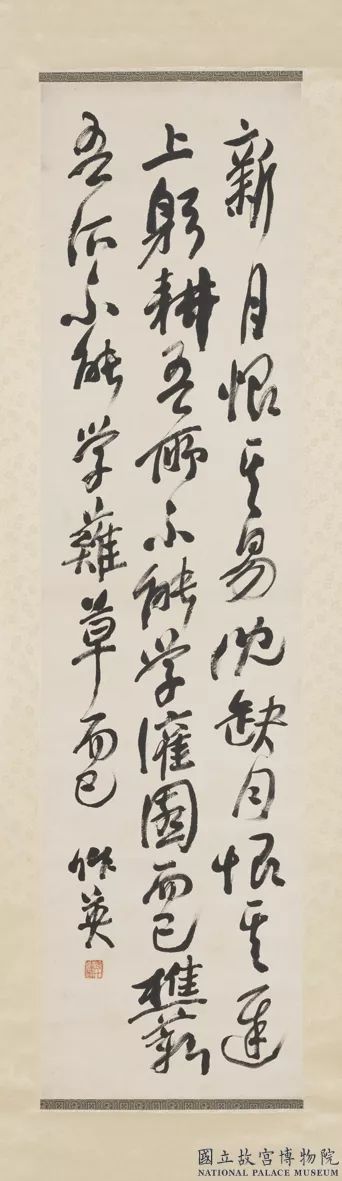 新月恨其易沈缺月恨其遲
上躬耕吾所不能学灌園而已樵薪
吾所不能学薙草而已
作英
國立故宮博物院
NATIONAL PALACE MUSEUM